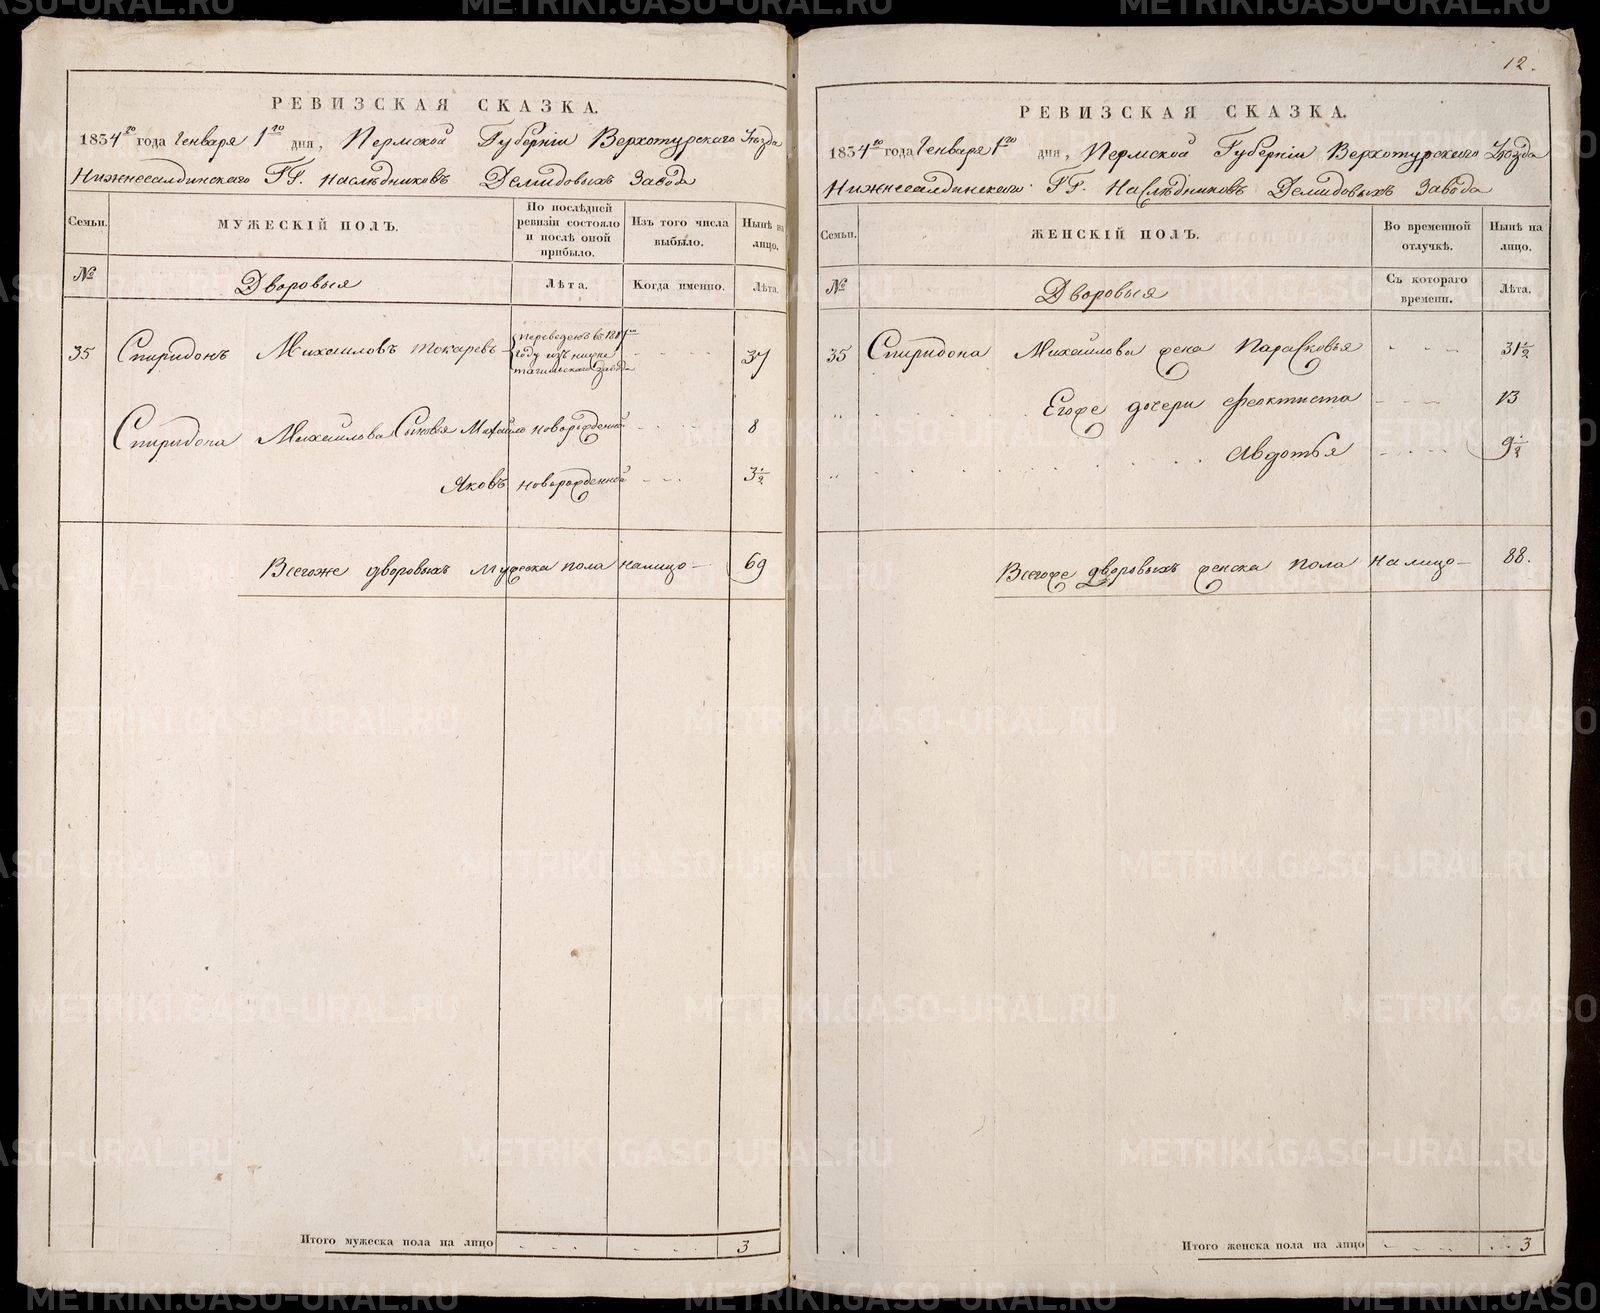 РЕВИЗСКАЯ СКАЗКА.
1834го года Генваря 1го дня, Пермской Губерніи Верхотурскаго Уѣзда
Нижнесалдинскаго ГГ. Наслѣдниковъ Демидовыхъ Завода
Семьи. МУЖЕСКІЙ ПОЛЪ. По послѣдней ревизіи состояло и послѣ оной прибыло. Изъ того числа выбыло. Нынѣ на лицо.
№ Дворовыя Лѣта. Когда именно. Лѣта.
35 Спиридонъ Михаиловъ Токаревъ Переведенъ въ году изъ нижне тагильскаго завода 37
Спиридона Михаилова Сыновья Михайло новорожденной 8
Яковъ новорожденной 3½
Всегоже дворовыхъ мужеска пола налицо 69
Итого мужеска пола на лицо 3
12.
РЕВИЗСКАЯ СКАЗКА.
1834го года Генваря 1го дня, Пермской Губерніи Верхотурскаго Уѣзда
Нижнесалдинскаго ГГ. Наслѣдниковъ Демидовыхъ Завода
Семьи. ЖЕНСКІЙ ПОЛЪ. Во временной отлучкѣ. Нынѣ на лицо.
№ Дворовыя Съ котораго времени. Лѣта.
35 Спиридона Михайлова жена Парасковья 31½
Егоже дочери Феоктиста 13
Авдотья 9½
Всегоже дворовыхъ женска пола налицо 88.
Итого женска пола на лицо 3
METRIKI.GASO-URAL.RU